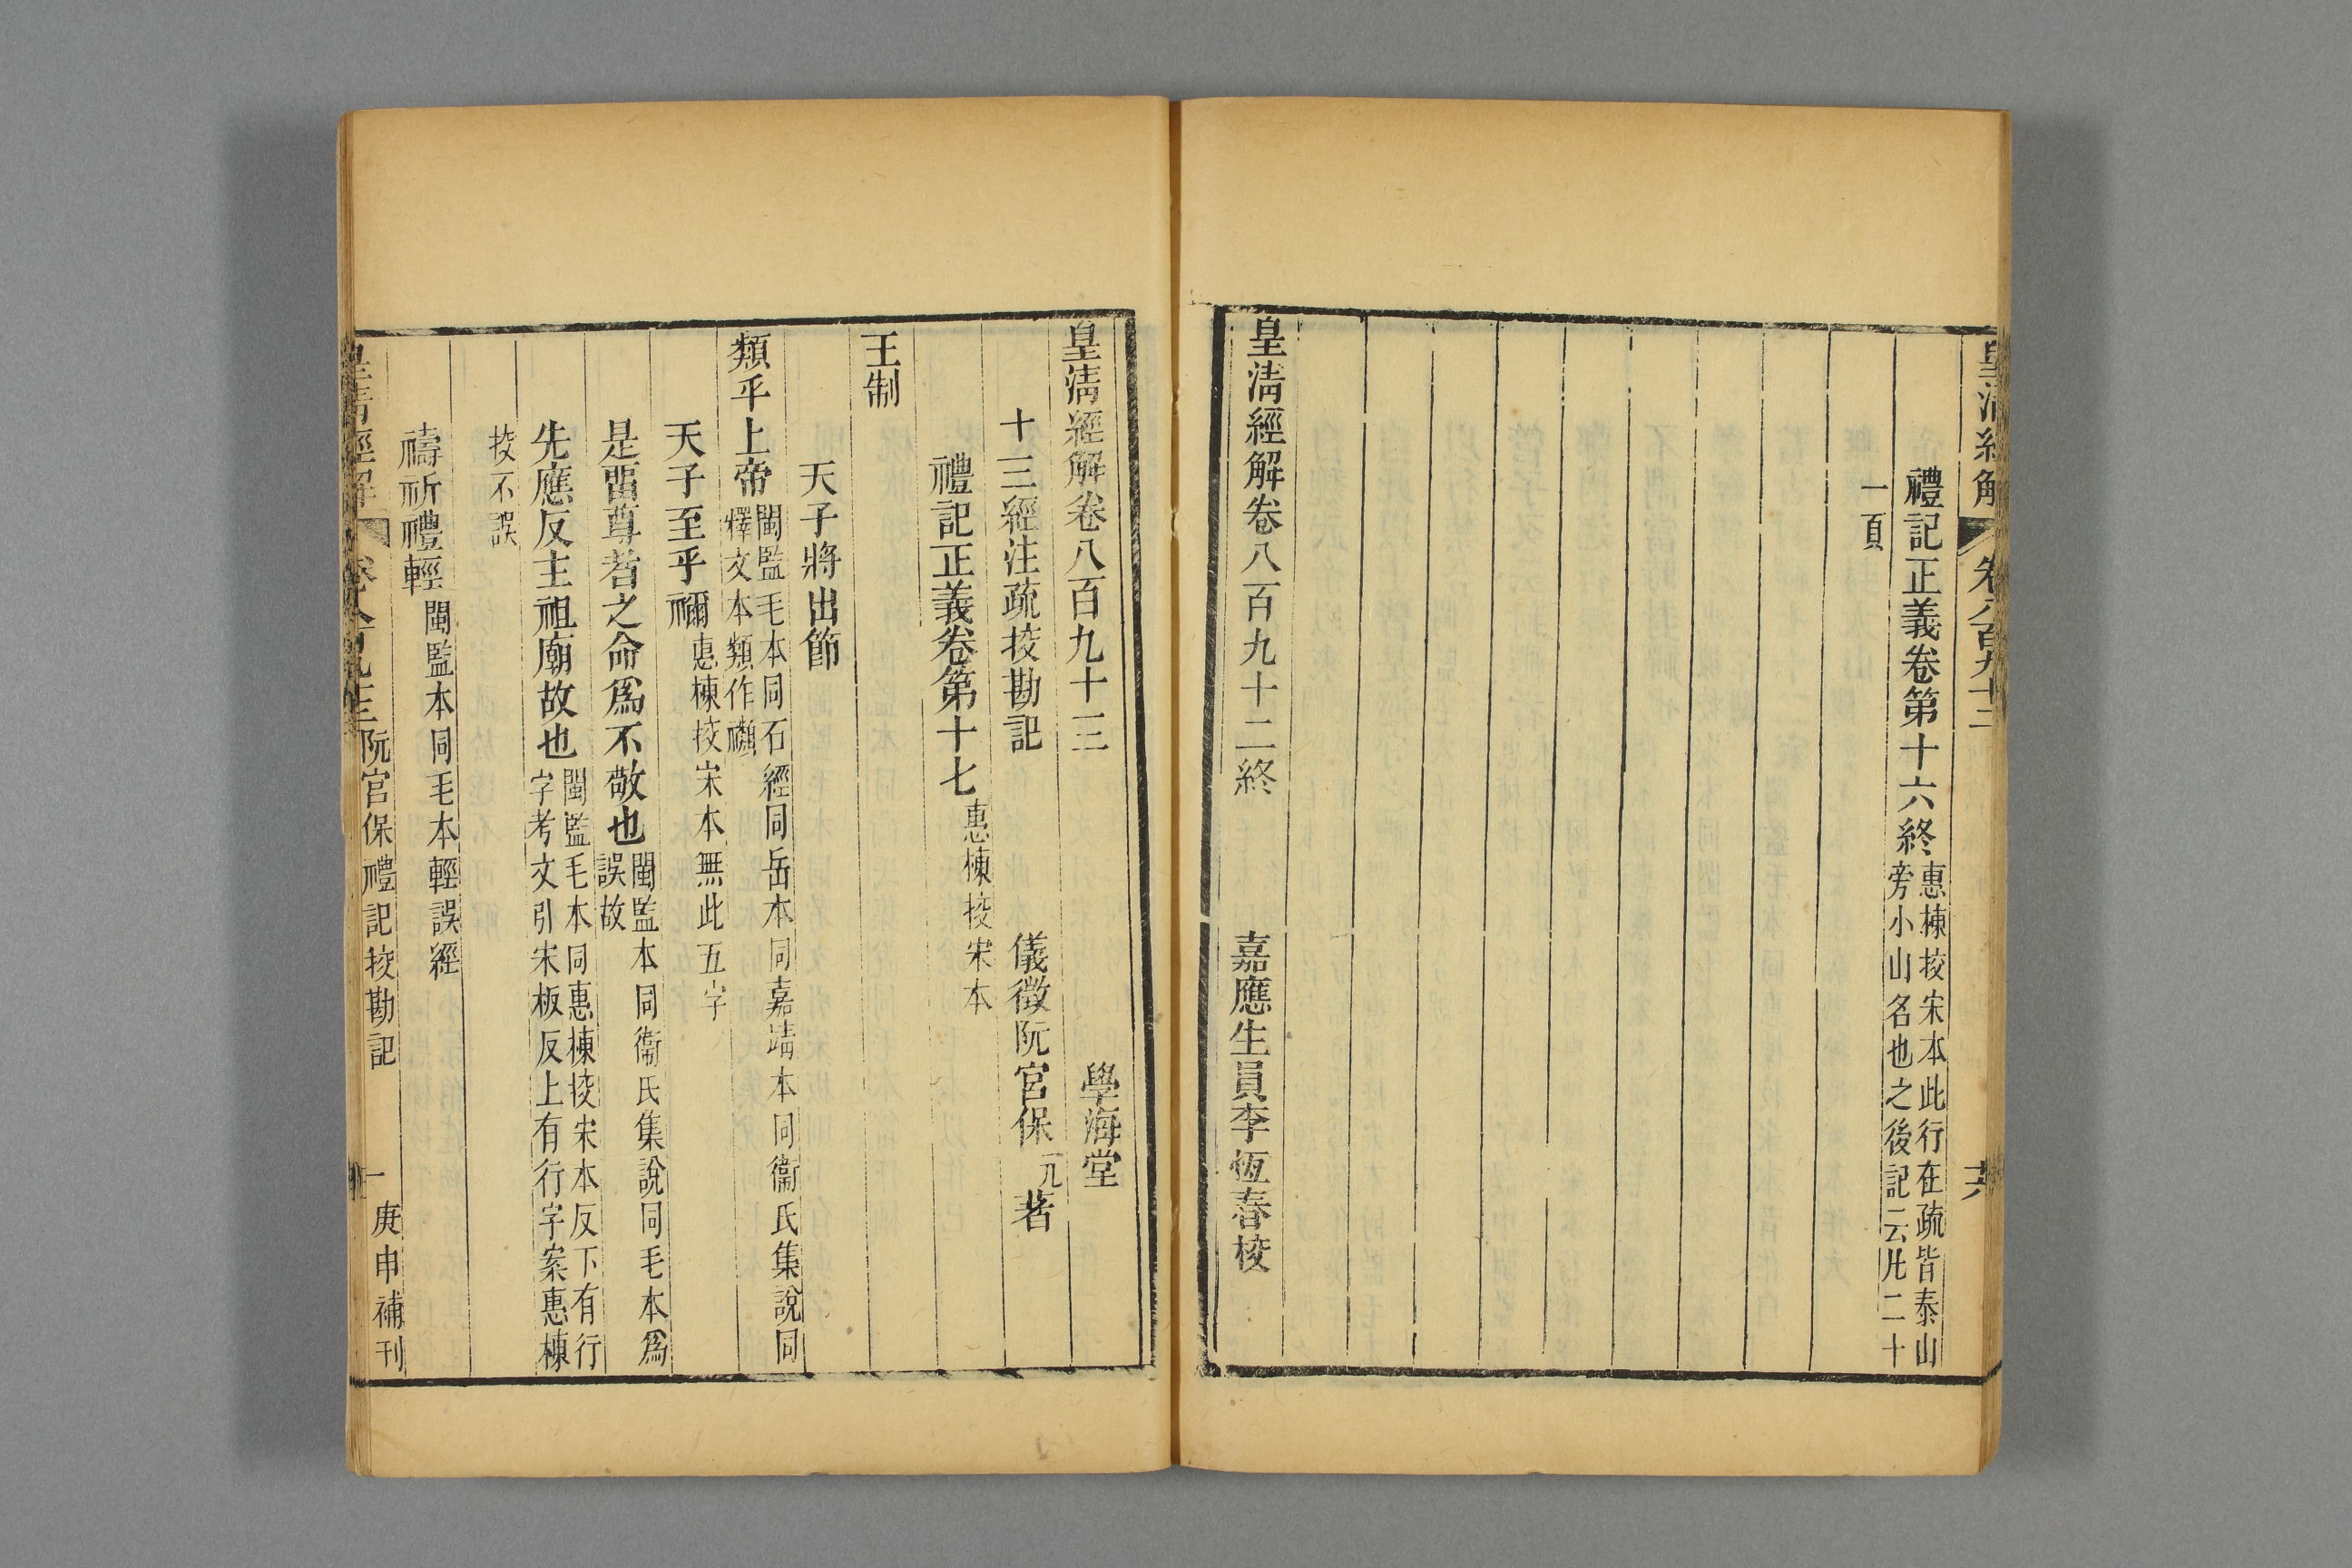 皇清經解
卷八百九十二
六
禮記正義卷第十六終
惠棟挍宋本此行在疏皆泰山
旁小山名也之後記云凡二十
一頁
皇清經解卷八百九十二終
嘉應生員李恆春校
皇清經解卷八百九十三
學海堂
十三經注疏挍勘記
儀徵阮宮保元著
禮記正義卷第十七
惠棟挍宋本
王制
天子將出節
類乎上帝
閩監毛本同石經同岳本同嘉靖本同衞氏集說同
釋文本類作禷
天子至乎禰
惠棟挍宋本無此五字
是畱尊者之命爲不敬也
閩監本同衞氏集說同毛本爲
誤故
先應反主祖廟故也
閩監毛本同惠棟挍宋本反下有行
字考文引宋板反上有行字案惠棟
挍不誤
禱祈禮輕
閩監本同毛本輕誤經
皇清經解
卷八百九十三
阮宮保禮記挍勘記
一
庚申補刊